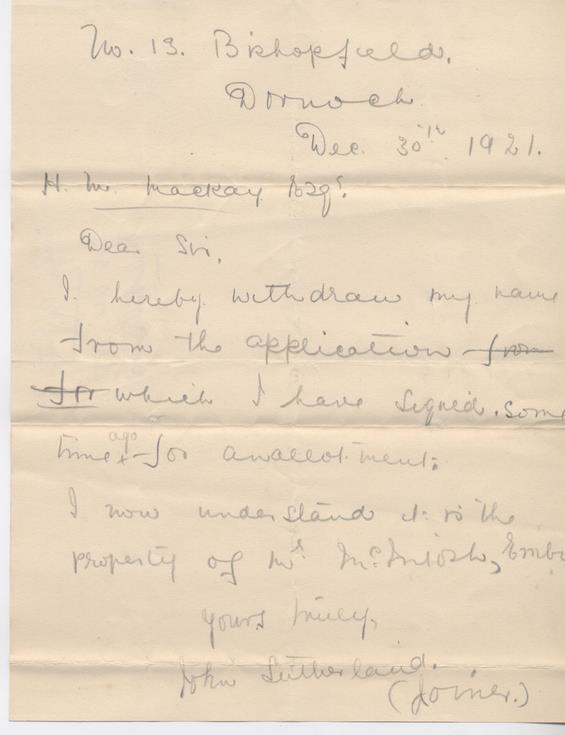 No. 13. Bishopfield.
Dornoch
Dec. 30th 1921.
H. M. Mackay Esqr.
Dear Sir,
I hereby withdraw my name
from the application from
for which I have signed. some
time ago for anallotment:
I now understand it is the
property of Mr McIntosh, Embo
yours truly,
John Sutherland.
(Joiner.)